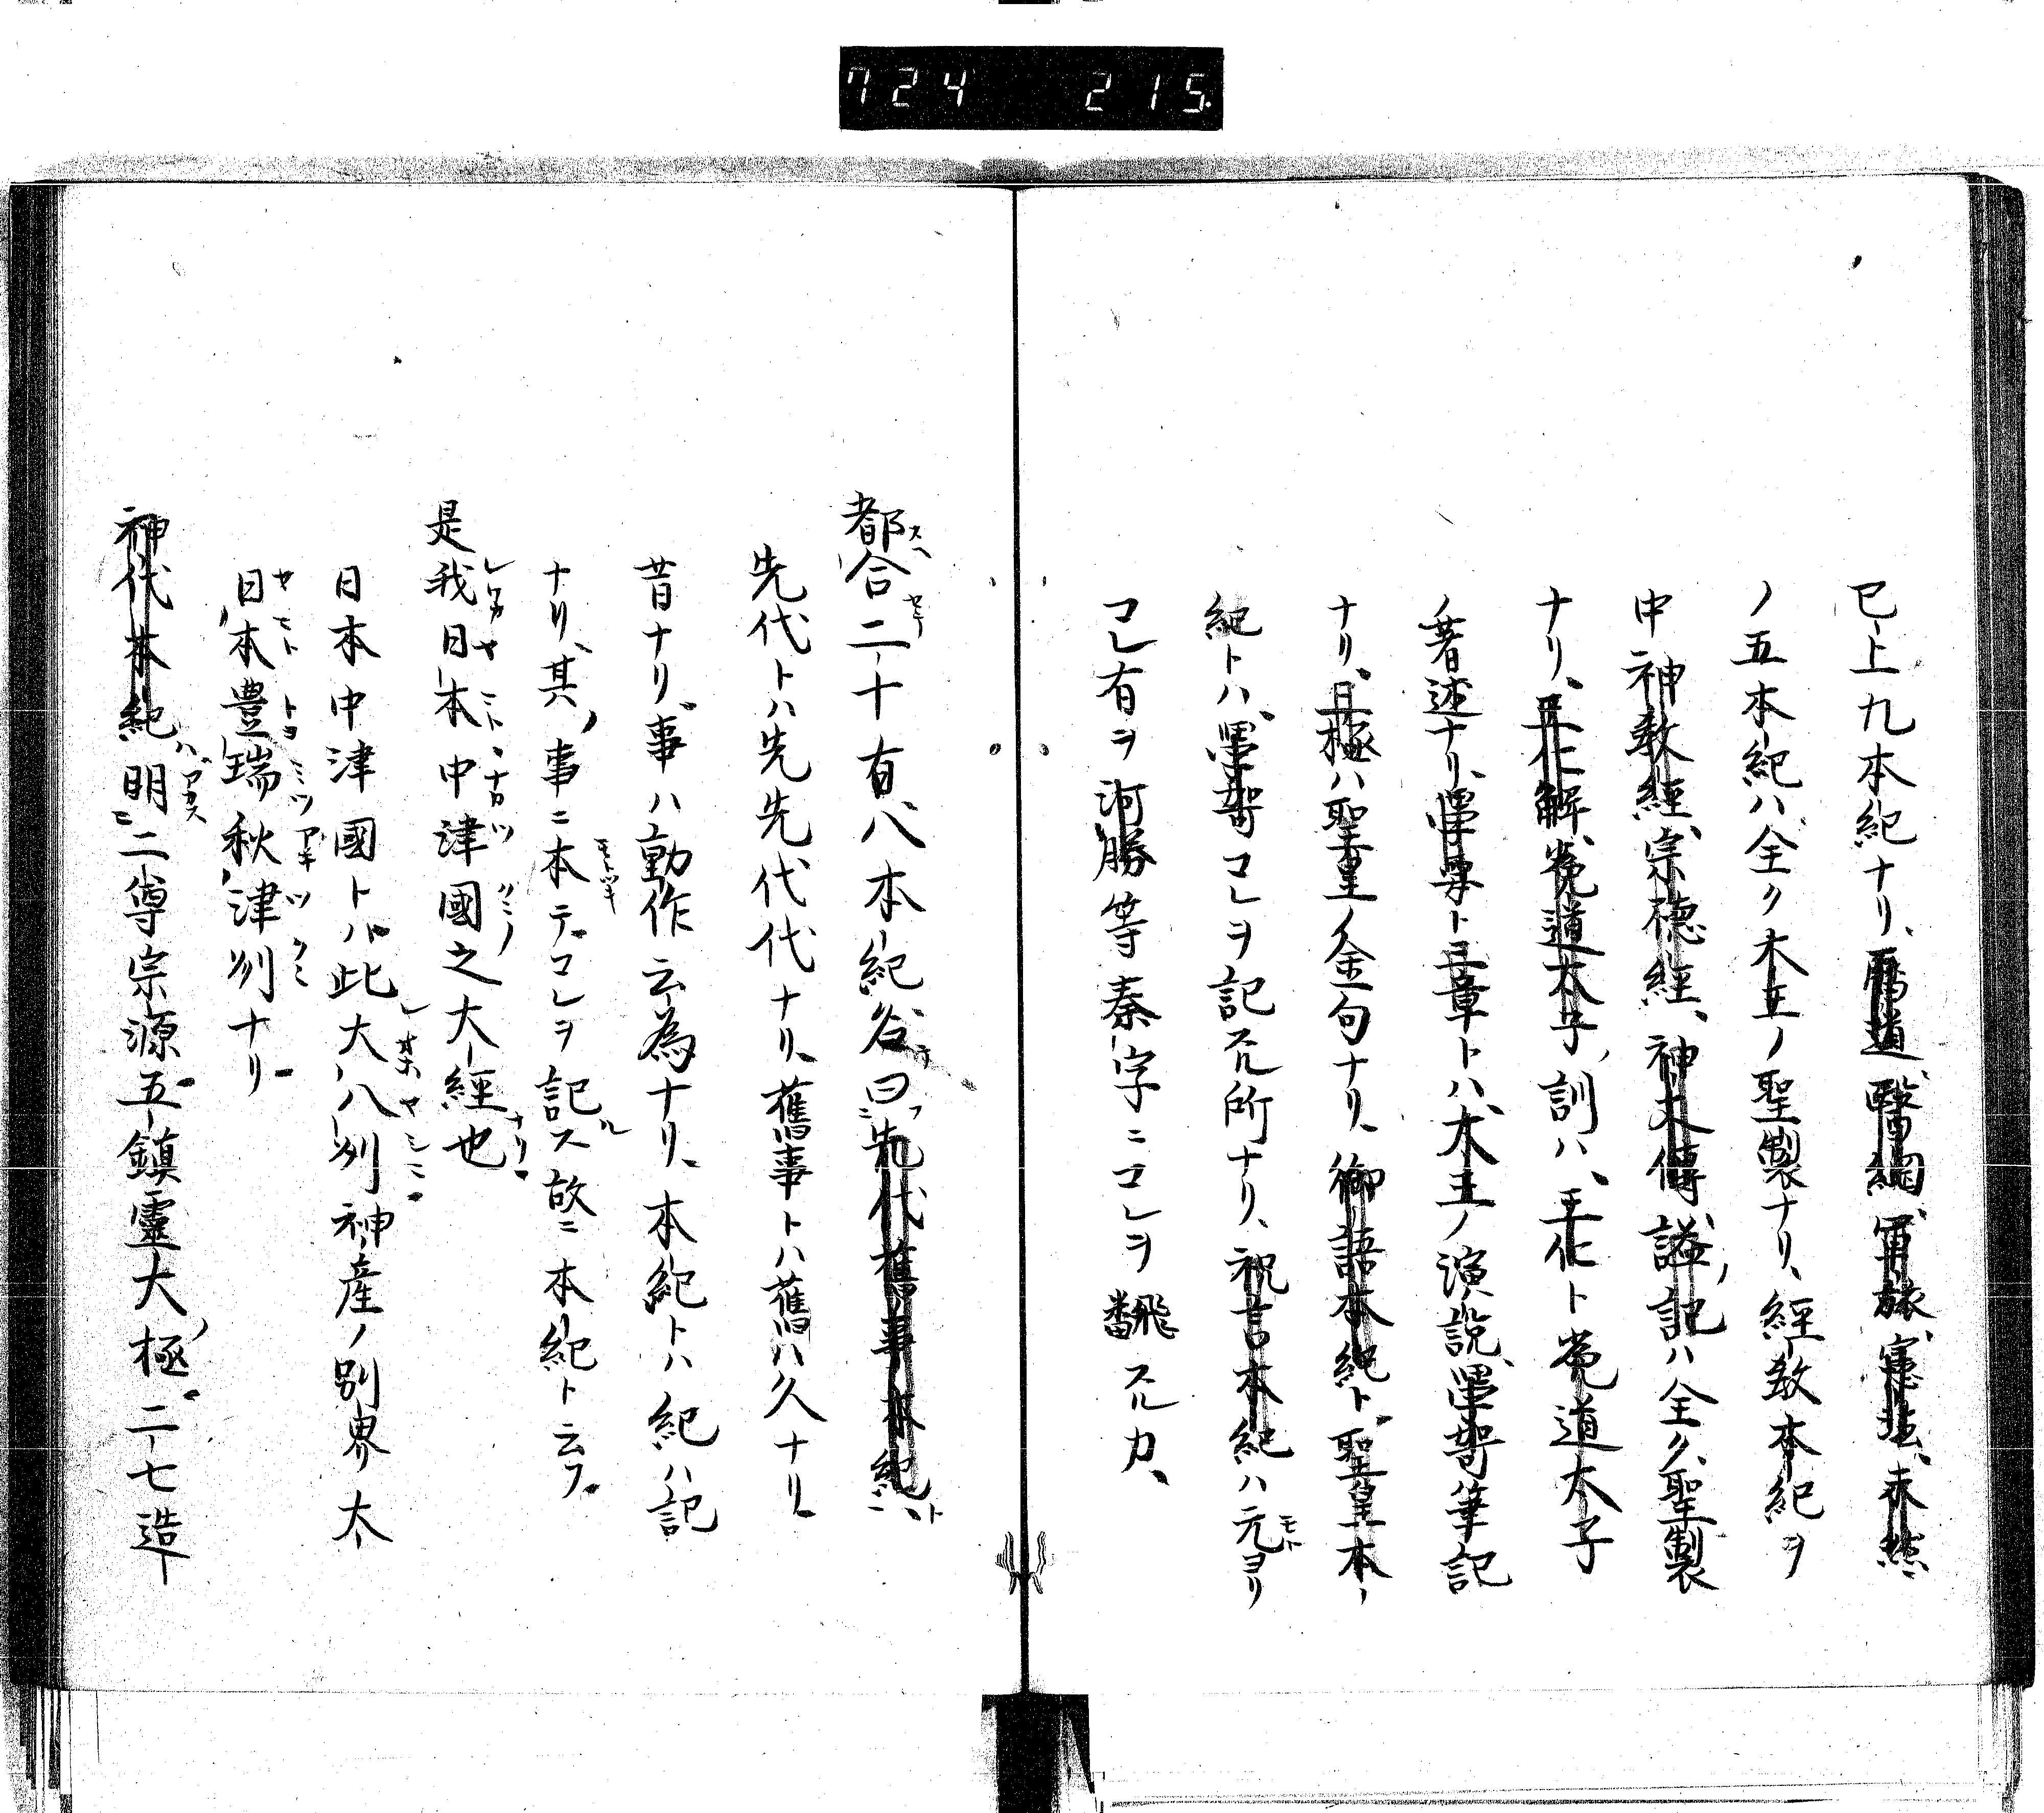 724 215.
已上九本紀ナリ、曆道、醫綱、軍旅、憲法、未然
ノ五本紀ハ全ク木王ノ聖製ナリ、經教本紀ヲ
中神教經、宗德經、神文傳、謚記ハ全ク聖製
ナリ、五化解、覺道太子ノ訓ハ、五化ト覺道太子
ノ著述ナリ、トハ、木王ノ演說、筆記
ナリ、且極ハ聖皇ノ金句ナリ、御語本紀ト、聖皇本
紀トハ、コレヲ記スル所ナリ、祝言本紀ハ元ヨリ
コレ有ヲ河勝等秦字ニコレヲ飜スルカ、
都合二十有八本紀名曰先代舊事本紀
先代トハ先先代代ナリ、舊事トハ舊ハ久ナリ
昔ナリ、事ハ動作云為ナリ、本紀トハ紀ハ記
ナリ、其ノ事ニ本テコレヲ記ス故ニ本紀ト云フ
是我日本中津國之大經也
日本中津國トハ此大八州神產ノ別界太
日本豊瑞秋津州ナリ
神代本紀ハ明二尊宗源五鎮靈大極二七造